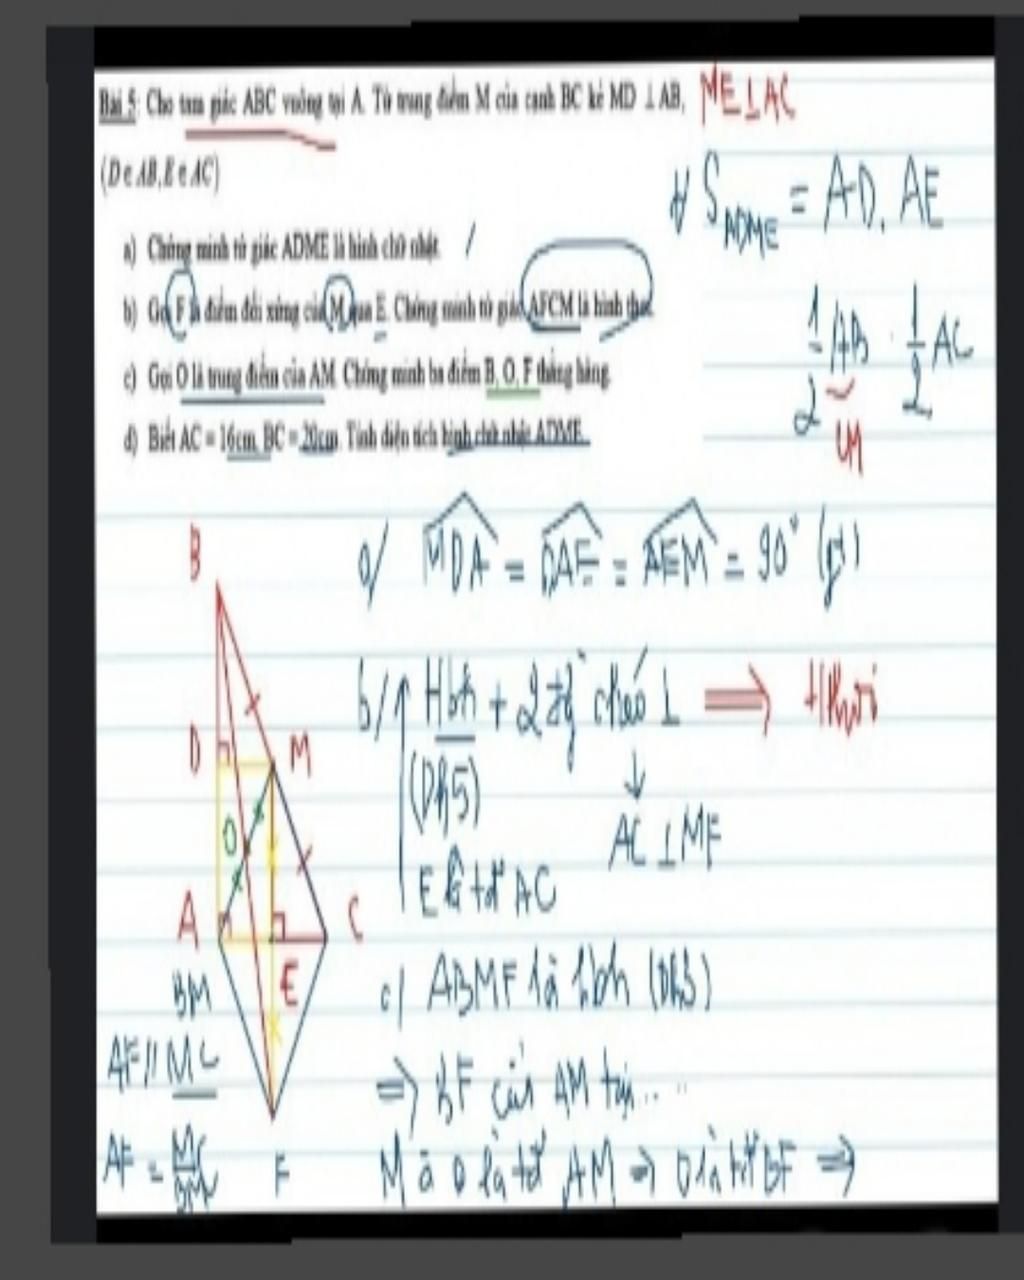 Bài 5: Cho tam giác ABC vuông tại A. Từ trung điểm M của cạnh BC kẻ MD ⊥ AB, ME ⊥ AC
(D ∈ AB, E ∈ AC)
a) Chứng minh tứ giác ADME là hình chữ nhật.
b) Gọi F là điểm đối xứng của M qua E. Chứng minh tứ giác AFCM là hình thoi.
c) Gọi O là trung điểm của AM. Chứng minh ba điểm B, O, F thẳng hàng.
d) Biết AC = 16cm, BC = 20cm. Tính diện tích hình chữ nhật ADME.
d/ S ADME = AD. AE
1/2 AB . 1/2 AC
a/ MDA = DAE = AEM = 90° (gt)
b/ Hbh + 2 đg chéo ⊥ ⟹ Hthoi
(Dh5)
↓
AC ⊥ MF
E là tđ AC
c/ ABMF là hbh (Dh3)
⟹ BF cắt AM tại...
Mà O là tđ AM ⟹ O là tđ BF ⟹
B
D
M
O
A
C
E
F
BM
AF // MC
AF = MC
BM